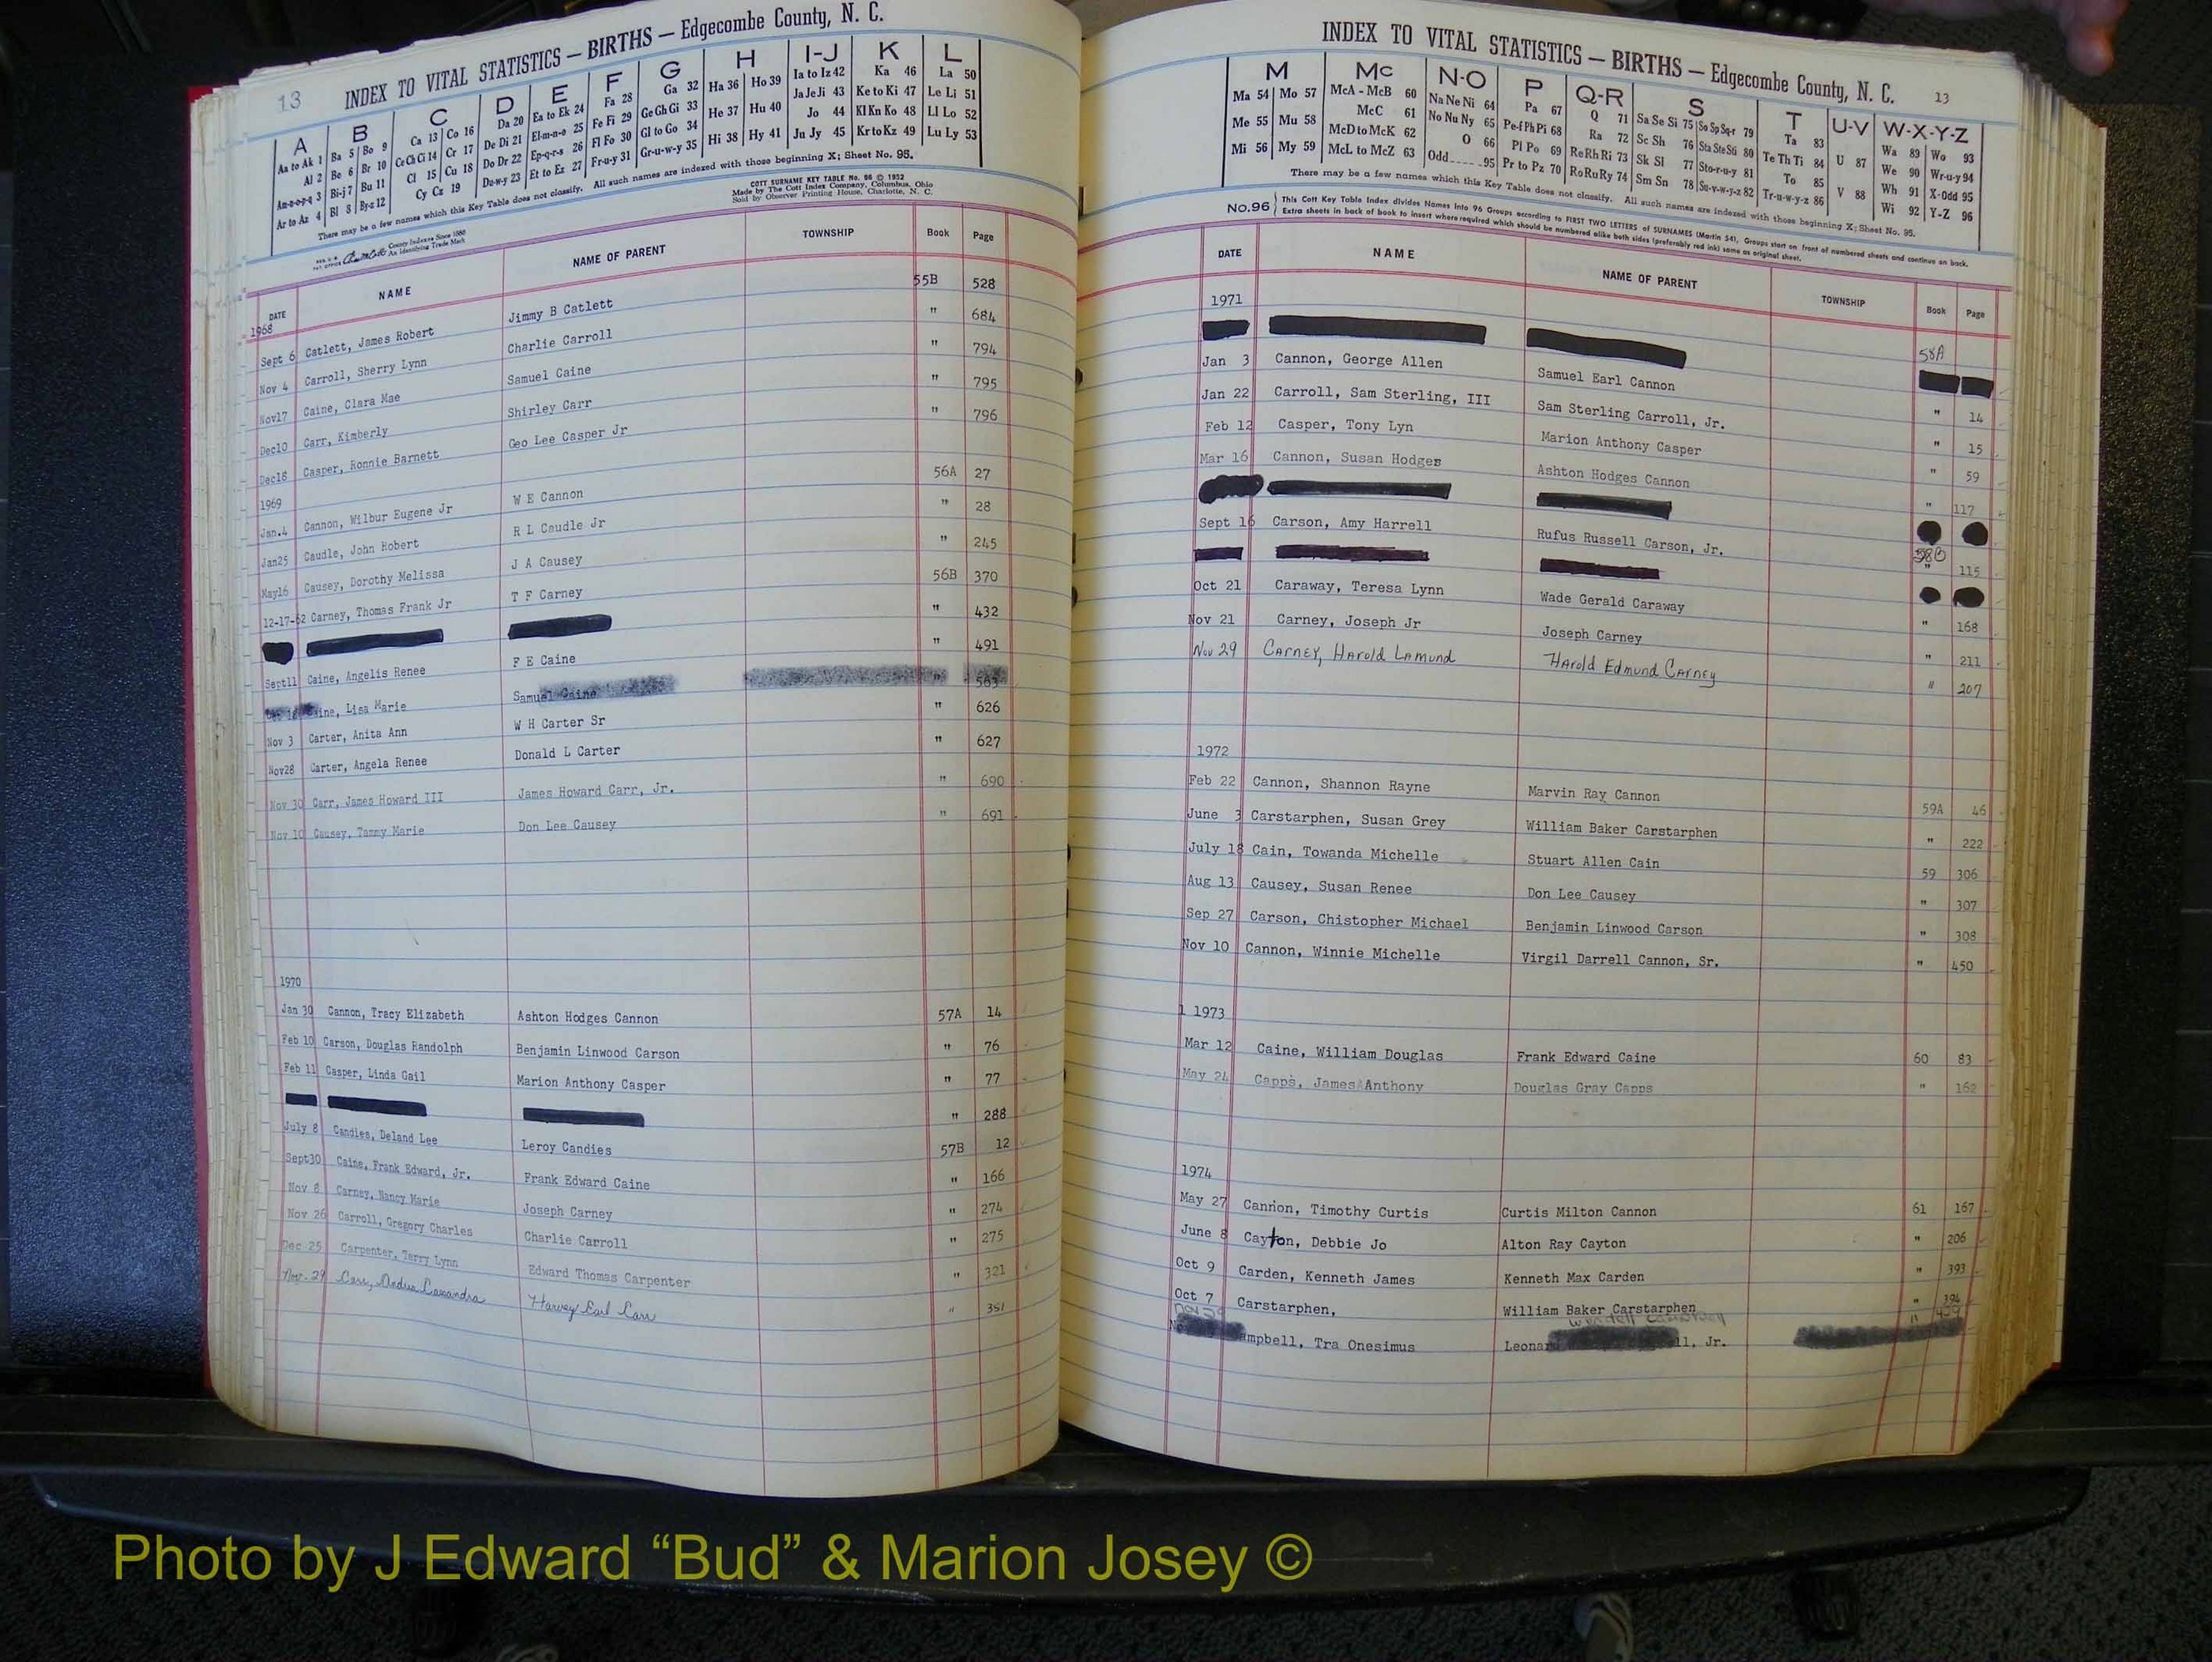 13 INDEX TO VITAL STATISTICS — BIRTHS — Edgecombe County, N. C.
A B C D E F G H I-J K L
Aa to Ak 1 Ba 5 Bo 9 Ca 13 Co 16 Da 20 Ea to Ek 24 Fa 28 Ga 32 Ha 36 Ho 39 Ia to Iz 42 Ka 46 La 50
Al 2 Be 6 Br 10 Ce Ch Ci 14 Cr 17 De Di 21 El-m-n-o 25 Fe Fi 29 Ge Gh Gi 33 He 37 Hu 40 Ja Je Ji 43 Ke to Ki 47 Le Li 51
Am-n-o-p-q 3 Bi-j 7 Bu 11 Cl 15 Cu 18 Do Dr 22 Ep-q-r-s 26 Fl Fo 30 Gl to Go 34 Hi 38 Hy 41 Jo 44 Kl Kn Ko 48 Ll Lo 52
Ar to Az 4 Bl 8 By-z 12 Cy Cz 19 Du-w-y 23 Et to Ez 27 Fr-u-y 31 Gr-u-w-y 35 Ju Jy 45 Kr to Kz 49 Lu Ly 53
There may be a few names which this Key Table does not classify. All such names are indexed with those beginning X; Sheet No. 95.
COTT SURNAME KEY TABLE No. 96 © 1952
Made by The Cott Index Company, Columbus, Ohio
Sold by Observer Printing House, Charlotte, N. C.
County Indexes Since 1888
An Identifying Trade Mark
DATE NAME NAME OF PARENT TOWNSHIP Book Page
1968
Sept 6 Catlett, James Robert Jimmy B Catlett 55B 528
Nov 4 Carroll, Sherry Lynn Charlie Carroll " 684
Nov17 Caine, Clara Mae Samuel Caine " 794
Dec10 Carr, Kimberly Shirley Carr " 795
Dec18 Casper, Ronnie Barnett Geo Lee Casper Jr " 796
1969
Jan.4 Cannon, Wilbur Eugene Jr W E Cannon 56A 27
Jan25 Caudle, John Robert R L Caudle Jr " 28
May16 Causey, Dorothy Melissa J A Causey " 245
12-17-62 Carney, Thomas Frank Jr T F Carney 56B 370
" 432
Sept11 Caine, Angelis Renee F E Caine " 491
ine, Lisa Marie Samuel Caine " 563
Nov 3 Carter, Anita Ann W H Carter Sr " 626
Nov28 Carter, Angela Renee Donald L Carter " 627
Nov 30 Carr, James Howard III James Howard Carr, Jr. " 690
Nov 10 Causey, Tammy Marie Don Lee Causey " 691
1970
Jan 30 Cannon, Tracy Elizabeth Ashton Hodges Cannon 57A 14
Feb 10 Carson, Douglas Randolph Benjamin Linwood Carson " 76
Feb 11 Casper, Linda Gail Marion Anthony Casper " 77
" 288
July 8 Candies, Deland Lee Leroy Candies 57B 12
Sept30 Caine, Frank Edward, Jr. Frank Edward Caine " 166
Nov 8 Carney, Nancy Marie Joseph Carney " 274
Nov 26 Carroll, Gregory Charles Charlie Carroll " 275
Dec 25 Carpenter, Terry Lynn Edward Thomas Carpenter " 321
Nov. 29 Carr, Cassandra Harvey Earl Carr " 351
INDEX TO VITAL STATISTICS — BIRTHS — Edgecombe County, N. C. 13
M Mc N-O P Q-R S T U-V W-X-Y-Z
Ma 54 Mo 57 McA - McB 60 Na Ne Ni 64 Pa 67 Q 71 Sa Se Si 75 So Sp Sq-r 79 Ta 83 Wa 89 Wo 93
Me 55 Mu 58 McC 61 No Nu Ny 65 Pe-f Ph Pi 68 Ra 72 Sc Sh 76 Sta Ste Sti 80 Te Th Ti 84 U 87 We 90 Wr-u-y 94
Mi 56 My 59 McD to McK 62 O 66 Pl Po 69 Re Rh Ri 73 Sk Sl 77 Sto-r-u-y 81 To 85 Wh 91 X-Odd 95
McL to McZ 63 Odd 95 Pr to Pz 70 Ro Ru Ry 74 Sm Sn 78 Su-v-w-y-z 82 Tr-u-w-y-z 86 V 88 Wi 92 Y-Z 96
There may be a few names which this Key Table does not classify. All such names are indexed with those beginning X; Sheet No. 95.
No.96 This Cott Key Table Index divides Names into 96 Groups according to FIRST TWO LETTERS of SURNAMES (Martin 54), Groups start on front of numbered sheets and continue on back.
Extra sheets in back of book to insert where required which should be numbered alike both sides (preferably red ink) same as original sheet.
DATE NAME NAME OF PARENT TOWNSHIP Book Page
1971
58A
Jan 3 Cannon, George Allen Samuel Earl Cannon " 14
Jan 22 Carroll, Sam Sterling, III Sam Sterling Carroll, Jr. " 15
Feb 12 Casper, Tony Lyn Marion Anthony Casper " 59
Mar 16 Cannon, Susan Hodges Ashton Hodges Cannon " 117
58B
Sept 16 Carson, Amy Harrell Rufus Russell Carson, Jr. " 115
Oct 21 Caraway, Teresa Lynn Wade Gerald Caraway " 168
Nov 21 Carney, Joseph Jr Joseph Carney " 211
Nov 29 Carney, Harold Lamund Harold Edmund Carney " 207
1972
Feb 22 Cannon, Shannon Rayne Marvin Ray Cannon 59A 46
June 3 Carstarphen, Susan Grey William Baker Carstarphen " 222
July 18 Cain, Towanda Michelle Stuart Allen Cain 59 306
Aug 13 Causey, Susan Renee Don Lee Causey " 307
Sep 27 Carson, Chistopher Michael Benjamin Linwood Carson " 308
Nov 10 Cannon, Winnie Michelle Virgil Darrell Cannon, Sr. " 450
1 1973
Mar 12 Caine, William Douglas Frank Edward Caine 60 83
May 24 Capps, James Anthony Douglas Gray Capps " 162
1974
May 27 Cannon, Timothy Curtis Curtis Milton Cannon 61 167
June 8 Cayton, Debbie Jo Alton Ray Cayton " 206
Oct 9 Carden, Kenneth James Kenneth Max Carden " 393
Oct 7 Carstarphen, William Baker Carstarphen " 394
Nov Wendell Campbell "
mpbell, Tra Onesimus Leona ll, Jr.
Photo by J Edward “Bud” & Marion Josey ©